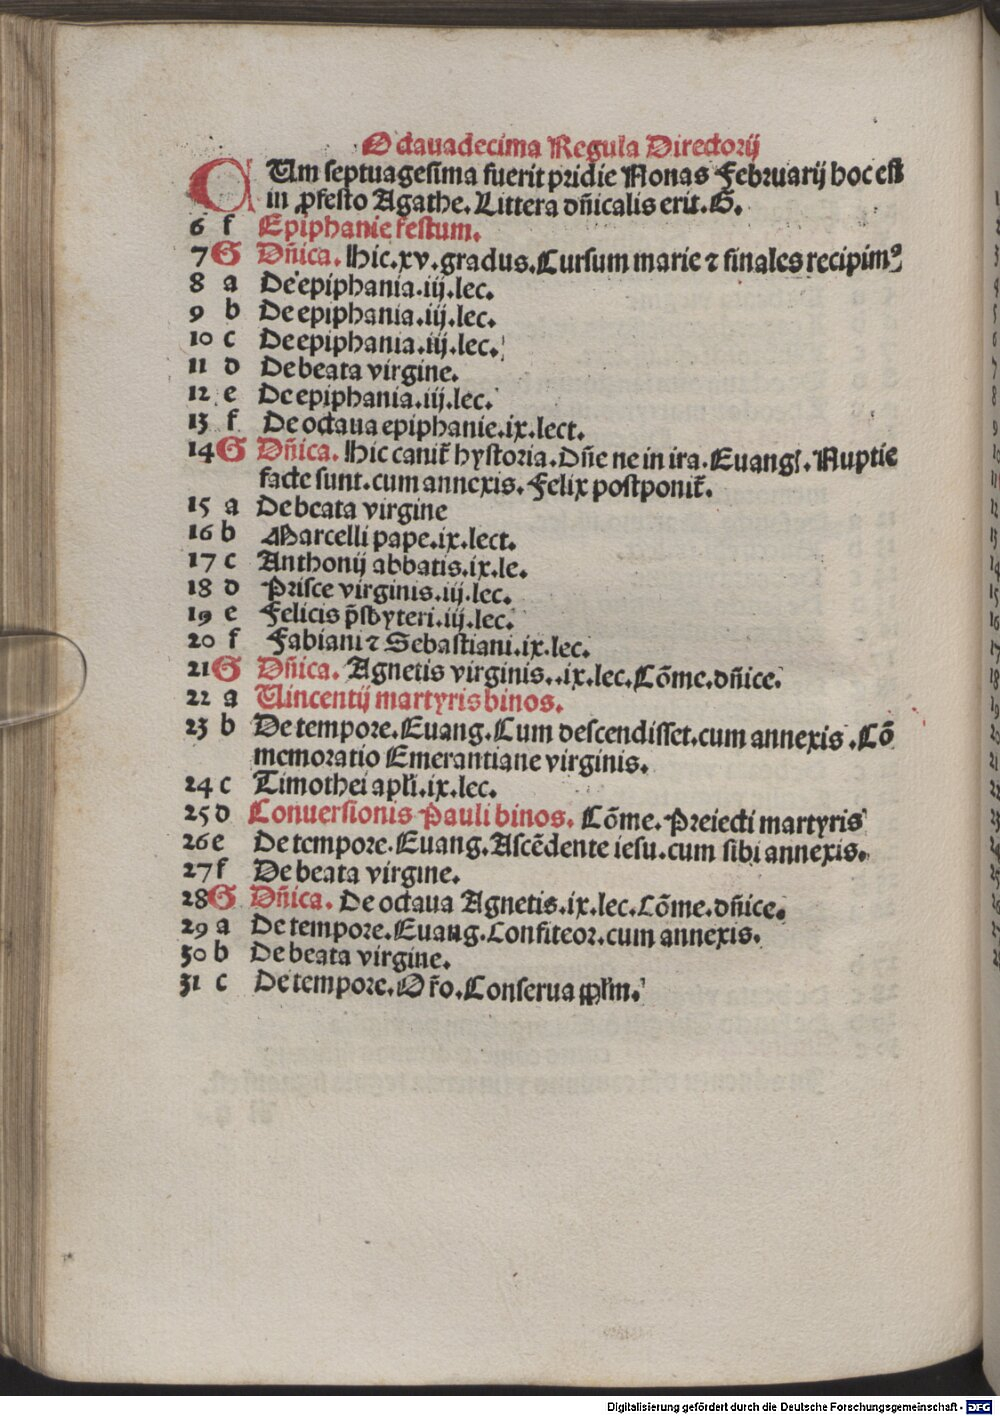 Octauadecima Regula Directorij
CUm septuagesima fuerit pridie Nonas Februarij hoc est
in ꝓfesto Agathe. Littera dñicalis erit. G.
6 f Epiphanie festum.
7 G Dñica. Hic.xv.gradus.Cursum marie ⁊ finales recipimꝰ
8 a De epiphania.iij.lec.
9 b De epiphania.iij.lec.
10 c De epiphania.iij.lec.
11 d De beata virgine.
12 e De epiphania.iij.lec.
13 f De octaua epiphanie.ix.lect.
14 G Dñica. Hic canit̃ hystoria. Dñe ne in ira. Euangl. Nuptie
facte sunt.cum annexis. Felix postponit̃.
15 a De beata virgine
16 b Marcelli pape.ix.lect.
17 c Anthonij abbatis.ix.le.
18 d Prisce virginis.iij.lec.
19 e Felicis p̃sbyteri.iij.lec.
20 f Fabiani ⁊ Sebastiani.ix.lec.
21 G Dñica. Agnetis virginis..ix.lec.Cõme.dñice.
22 a Uincentij martyris binos.
23 b De tempore.Euang.Cum descendisset.cum annexis.Cõ
memoratio Emerantiane virginis.
24 c Timothei apl̃i.ix.lec.
25 d Conuersionis Pauli binos. Cõme.Preiecti martyris
26 e De tempore.Euang.Ascẽdente iesu.cum sibi annexis.
27 f De beata virgine.
28 G Dñica. De octaua Agnetis.ix.lec.Cõme.dñice.
29 a De tempore.Euang.Confiteor.cum annexis.
30 b De beata virgine.
31 c De tempore.Or̃o.Conserua ppl̃m.
Digitalisierung gefördert durch die Deutsche Forschungsgemeinschaft - DFG